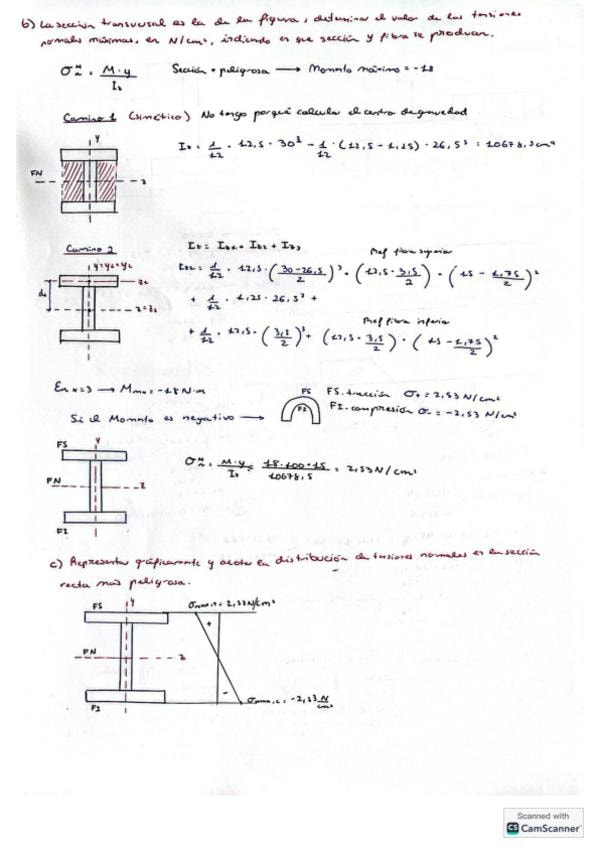 b) La sección transversal es la de la figura, determinar el valor de las tensiones
normales máximas, en N/cm², indicando en que sección y fibra se producen.
σ = M·y / Iz   Sección + peligrosa → Momento máximo = -18
Camino 1 (simétrico) No tengo porqué calcular el centro de gravedad
Iz = 1/12 · 12,5 · 30³ - 1/12 · (12,5 - 1,25) · 26,5³ = 10678,5 cm⁴
Y
FN
z
Camino 2   Iz = Iz1 + Iz2 + Iz3
Ala fibra superior
= 1/12 · 12,5 · (30-26,5 / 2)³ + (12,5 · 3,5/2) · (15 - 1,75/2)²
+ 1/12 · 1,25 · 26,5³ +
Ala fibra inferior
+ 1/12 · 12,5 · (3,5/2)³ + (12,5 · 3,5/2) · (15 - 1,75/2)²
En x=3 → = -18 N·m   FS   FI   FS. tracción σ+ = 2,53 N/cm²
Si el Momento es negativo →   FI. compresión σ- = -2,53 N/cm²
FS
Y
FN
z
FI
σ = M·y / Iz = 18·100·15 / 10678,5 = 2,53 N/cm²
c) Representar gráficamente y acotar la distribución de tensiones normales en la sección
recta más peligrosa.
FS
Y
σmax,T = 2,53 N/cm²
+
FN
z
-
FI
σmax,c = -2,53 N/cm²
Scanned with
CS CamScanner